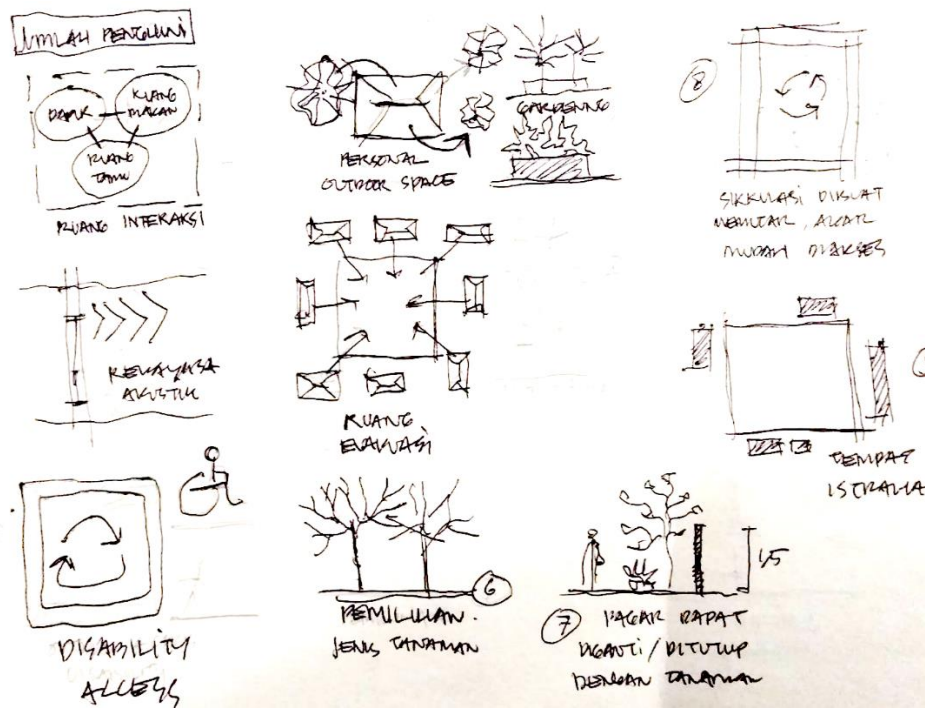 JUMLAH PENGHUNI
DAPUR
RUANG
MAKAN
RUANG
TAMU
RUANG INTERAKSI
PERSONAL
OUTDOOR SPACE
GARDENING
8
SIRKULASI DIBUAT
MEMUTAR, AGAR
MUDAH DIAKSES
REKAYASA
AKUSTIK
RUANG
EVAKUASI
TEMPAT
ISTIRAHA
DISABILITY
ACCESS
6
PEMILIHAN
JENIS TANAMAN
1,5
7
PAGAR RAPAT
DIGANTI/DITUTUP
DENGAN TANAMAN